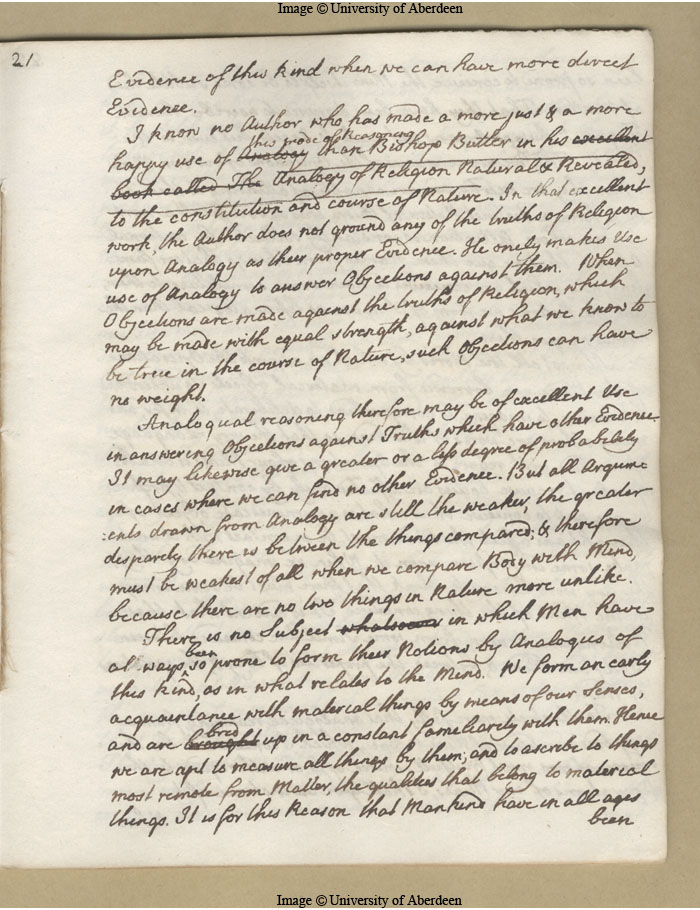 Image © University of Aberdeen
21
Evidence of this kind when we can have more direct
Evidence.
I know no Author who has made a more just & a more
this mode of Reasoning
happy use of Analogy than Bishop Butler in his excellent
book called The Analogy of Religion Natural & Revealed,
to the constitution and course of Nature. In that excellent
work, the Author does not ground any of the truths of Religion
upon Analogy as their proper Evidence. He onely makes Use
use of Analogy to answer Objections against them. When
Objections are made against the truths of Religion, which
may be made with equal strength, against what we know to
be true in the course of Nature, such Objections can have
no weight.
Analogual reasoning therefore may be of excellent Use
in answering Objections against Truths which have other Evidence.
It may likewise give a greater or a less degree of probability
in cases where we can find no other Evidence. But all Argum-
:ents drawn from Analogy are still the weaker, the greater
disparety there is between the things compared; & therefore
must be weakest of all when we compare Body with Mind,
because there are no two things in Nature more unlike.
There is no Subject whatsoever in which Men have
been
al ways so prone to form their Notions by Analogies of
this kind, as in what relates to the Mind. We form an early
acquaintance with material things by means of our Senses,
bred
and are brought up in a constant fameliarity with them. Hence
we are apt to measure all things by them; and to ascribe to things
most remote from Matter, the qualities that belong to material
things. It is for this Reason that Mankind have in all ages
been
Image © University of Aberdeen